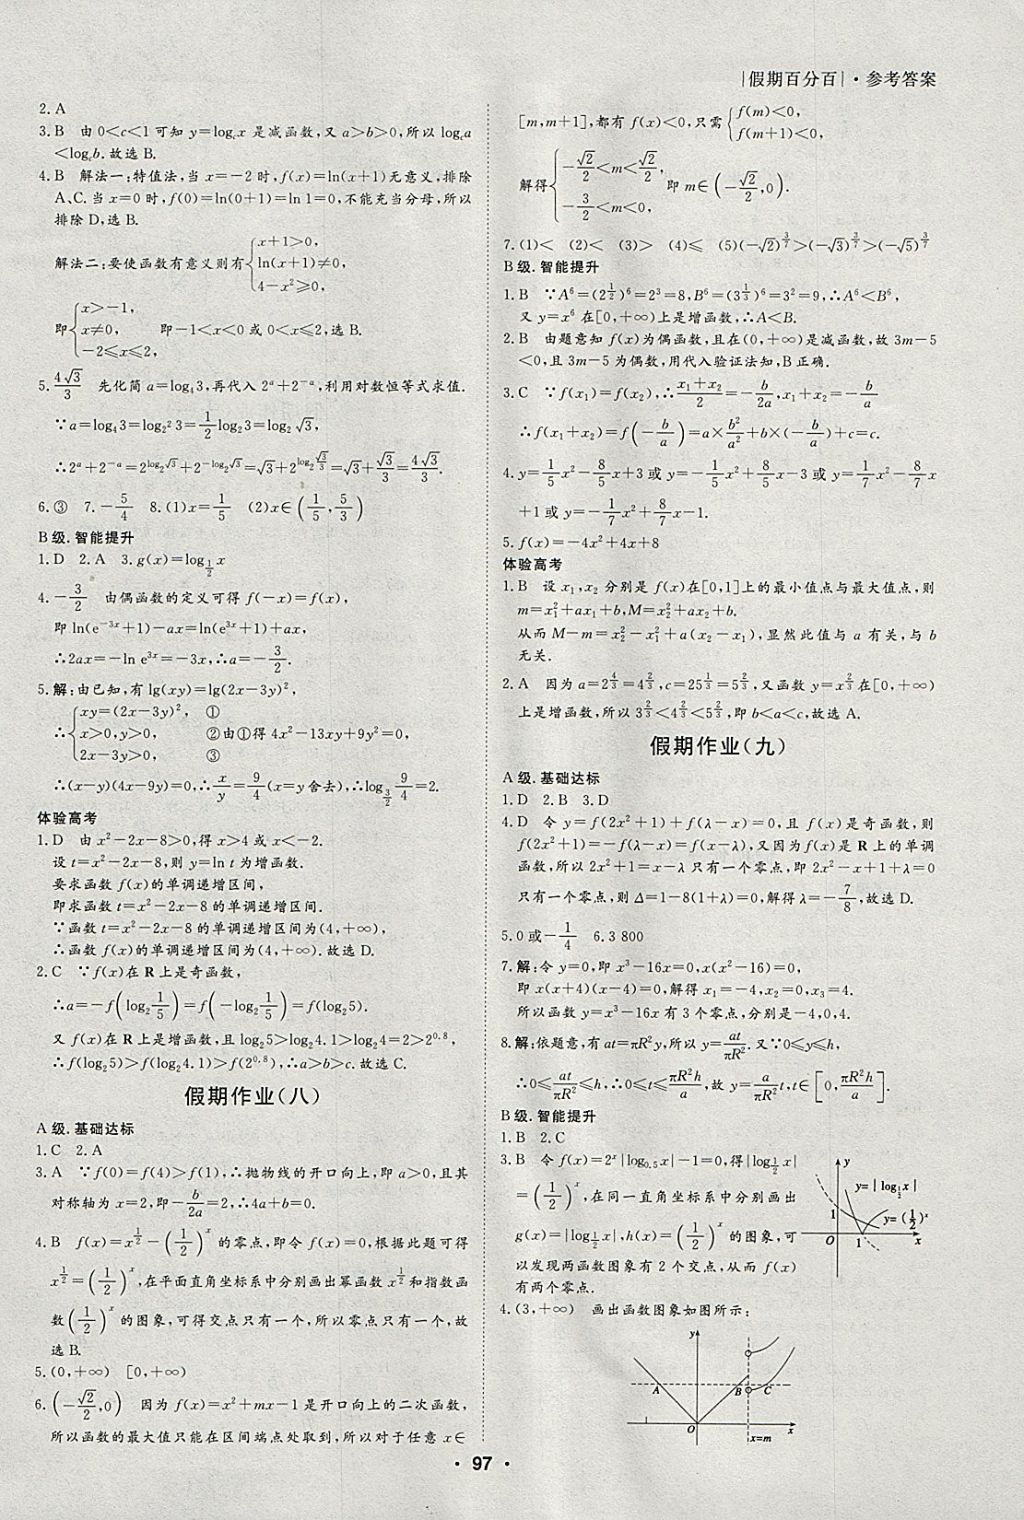 |假期百分百|·参考答案
2. A
3. B　由0<c<1可知 y=log_c x 是减函数,又 a>b>0,所以 log_c a
<log_c b.故选 B.
4. B　解法一:特值法,当 x=-2 时,f(x)=ln(x+1)无意义,排除
A、C.当 x=0 时,f(0)=ln(0+1)=ln 1=0,不能充当分母,所以
排除 D,选 B.
解法二:要使函数有意义则有{x+1>0,
ln(x+1)≠0,
4-x²≥0,
即{x>-1,
x≠0,　　即-1<x<0 或 0<x≤2,选 B.
-2≤x≤2,
5. 4√3/3　先化简 a=log₄3,再代入 2^a+2^(-a),利用对数恒等式求值.
∵a=log₄3=log_(2²)3=1/2 log₂3=log₂√3,
∴2^a+2^(-a)=2^(log₂√3)+2^(-log₂√3)=√3+2^(log₂ √3/3)=√3+√3/3=4√3/3.
6. ③　7. -5/4　8. (1)x=1/5　(2)x∈(1/5,5/3)
B 级.智能提升
1. D　2. A　3. g(x)=log_(1/2) x
4. -3/2　由偶函数的定义可得 f(-x)=f(x),
即 ln(e^(-3x)+1)-ax=ln(e^(3x)+1)+ax,
∴2ax=-ln e^(3x)=-3x,∴a=-3/2.
5. 解:由已知,有 lg(xy)=lg(2x-3y)²,
∴{xy=(2x-3y)²,　①
x>0,y>0,　②由①得 4x²-13xy+9y²=0,
2x-3y>0　③
∴(x-y)(4x-9y)=0,∴x/y=9/4(x=y 舍去),∴log_(3/2) 9/4=2.
体验高考
1. D　由 x²-2x-8>0,得 x>4 或 x<-2.
设 t=x²-2x-8,则 y=ln t 为增函数.
要求函数 f(x)的单调递增区间,
即求函数 t=x²-2x-8 的单调递增区间.
∵函数 t=x²-2x-8 的单调递增区间为(4,+∞),
∴函数 f(x)的单调递增区间为(4,+∞).故选 D.
2. C　∵f(x)在 R 上是奇函数,
∴a=-f(log₂ 1/5)=f(-log₂ 1/5)=f(log₂5).
又 f(x)在 R 上是增函数,且 log₂5>log₂4.1>log₂4=2>2^0.8,
∴f(log₂5)>f(log₂4.1)>f(2^0.8),∴a>b>c.故选 C.
假期作业(八)
A 级.基础达标
1. C　2. A
3. A　∵f(0)=f(4)>f(1),∴抛物线的开口向上,即 a>0,且其
对称轴为 x=2,即-b/2a=2,∴4a+b=0.
4. B　f(x)=x^(1/2)-(1/2)^x 的零点,即令 f(x)=0,根据此题可得
x^(1/2)=(1/2)^x,在平面直角坐标系中分别画出幂函数 x^(1/2) 和指数函
数(1/2)^x 的图象,可得交点只有一个,所以零点只有一个,故
选 B.
5. (0,+∞)　[0,+∞)
6. (-√2/2,0)　因为 f(x)=x²+mx-1 是开口向上的二次函数,
所以函数的最大值只能在区间端点处取到,所以对于任意 x∈
[m,m+1],都有 f(x)<0,只需{f(m)<0,
f(m+1)<0,
解得{-√2/2<m<√2/2,
-3/2<m<0,　即 m∈(-√2/2,0).
7. (1)<　(2)<　(3)>　(4)≤　(5)(-√2)^(3/7)>(-√3)^(3/7)>(-√5)^(3/7)
B 级.智能提升
1. B　∵A⁶=(2^(1/2))⁶=2³=8,B⁶=(3^(1/3))⁶=3²=9,∴A⁶<B⁶,
又 y=x⁶ 在[0,+∞)上是增函数,∴A<B.
2. B　由题意知 f(x)为偶函数,且在(0,+∞)是减函数,故 3m-5
<0,且 3m-5 为偶数,用代入验证法知,B 正确.
3. C　∵f(x₁)=f(x₂),∴(x₁+x₂)/2=-b/2a,x₁+x₂=-b/a
∴f(x₁+x₂)=f(-b/a)=a×b²/a²+b×(-b/a)+c=c.
4. y=1/5x²-8/5x+3 或 y=-1/5x²+8/5x-3 或 y=1/7x²-8/7x
+1 或 y=-1/7x²+8/7x-1.
5. f(x)=-4x²+4x+8
体验高考
1. B　设 x₁,x₂ 分别是 f(x)在[0,1]上的最小值点与最大值点,则
m=x₁²+ax₁+b,M=x₂²+ax₂+b.
从而 M-m=x₂²-x₁²+a(x₂-x₁),显然此值与 a 有关,与 b
无关.
2. A　因为 a=2^(4/3)=4^(2/3),c=25^(1/3)=5^(2/3),又函数 y=x^(2/3)在[0,+∞)
上是增函数,所以 3^(2/3)<4^(2/3)<5^(2/3),即 b<a<c,故选 A.
假期作业(九)
A 级.基础达标
1. D　2. B　3. D
4. D　令 y=f(2x²+1)+f(λ-x)=0,且 f(x)是奇函数,则
f(2x²+1)=-f(λ-x)=f(x-λ),又因为 f(x)是 R 上的单调
函数,所以 2x²+1=x-λ 只有一个零点,即 2x²-x+1+λ=0
只有一个零点,则 Δ=1-8(1+λ)=0,解得 λ=-7/8,故选 D.
5. 0 或-1/4　6. 3 800
7. 解:令 y=0,即 x³-16x=0,x(x²-16)=0,
即 x(x+4)(x-4)=0,解得 x₁=-4,x₂=0,x₃=4.
所以函数 y=x³-16x 有 3 个零点,分别是-4,0,4.
8. 解:依题意,有 at=πR²y,所以 y=at/πR².又∵0≤y≤h,
∴0≤at/πR²≤h,∴0≤t≤πR²h/a,故 y=a/πR² t,t∈[0,πR²h/a].
B 级.智能提升
1. B　2. C
3. B　令 f(x)=2^x|log_0.5 x|-1=0,得|log_(1/2) x|
=(1/2)^x,在同一直角坐标系中分别画出
g(x)=|log_(1/2) x|,h(x)=(1/2)^x 的图象,可
以发现两函数图象有 2 个交点,从而 f(x)
有两个零点.
y
y=|log_(1/2) x|
1
y=(1/2)^x
O　1　x
4. (3,+∞)　画出函数图象如图所示:
y
A　B　C
O　x=m　x
· 97 ·